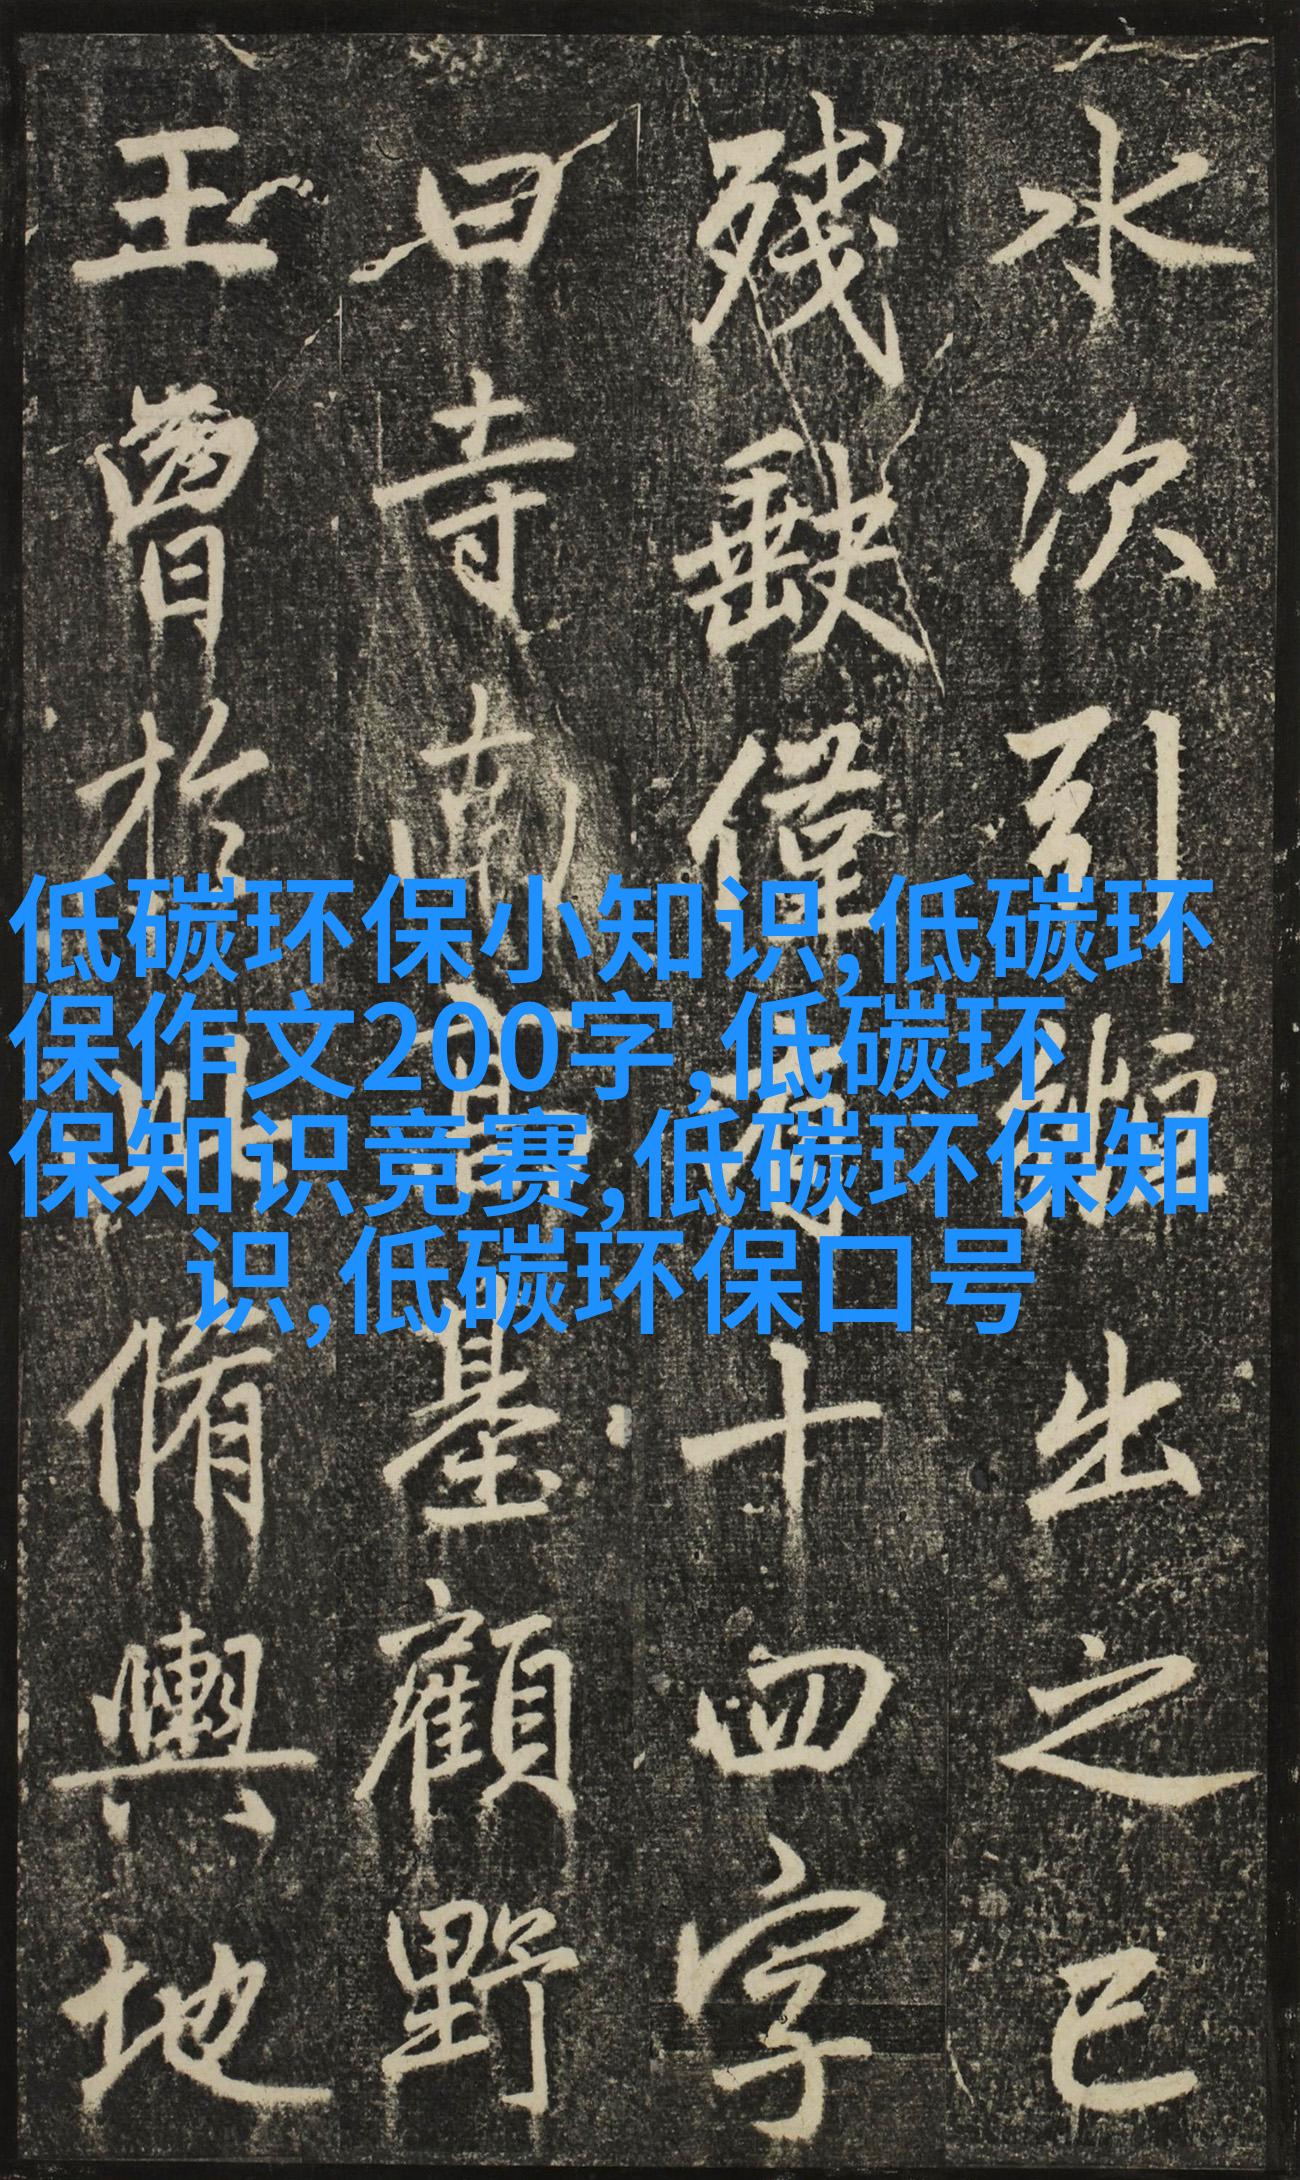 水次引出之已
殘𡙇僅十四字
曰寺南高基顧野
王曾於此脩輿地
低碳环保小知识,低碳环
保作文200字,低碳环
保知识竞赛,低碳环保知
识,低碳环保口号